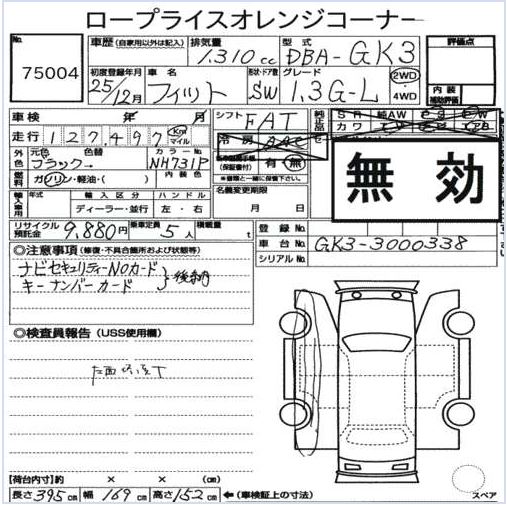 ロープライスオレンジコーナー
No. 75004
車歴 (自家用以外は記入) 排気量 1.310cc 型式 DBA-GK3 評価点
初度登録年月 25/12月 車名 フィット 形状・ドア数 SW グレード 1.3G-L 2WD 4WD 内装 補助評価
車検 年 月 シフト FAT 純正品 SR 純AW PS PW
走行 127,497 Km マイル 冷房 AAC カワ TV
外色 元色 ブラック 色替 カラーNo. NH731P (保証書付) 有 無 無効
燃料 ガソリン・軽油・( ) 内装色 ※書類と一緒に保管下さい。
輸入車用 年式 輸入区分 ハンドル 名義変更期限
ディーラー・並行 左・右 月 日
リサイクル預託金 9,880円 乗車定員 5人 積載量 t 登録No.
車台No. GK3-3000338
シリアルNo.
◎注意事項 (修復・不具合箇所および状態等)
ナビセキュリティーNoカード
キーナンバーカード } 後納
◎検査員報告 (USS使用欄)
【荷台内寸】約 × × (cm)
長さ 395cm 幅 169cm 高さ 152cm ←(車検証上の寸法) スペア